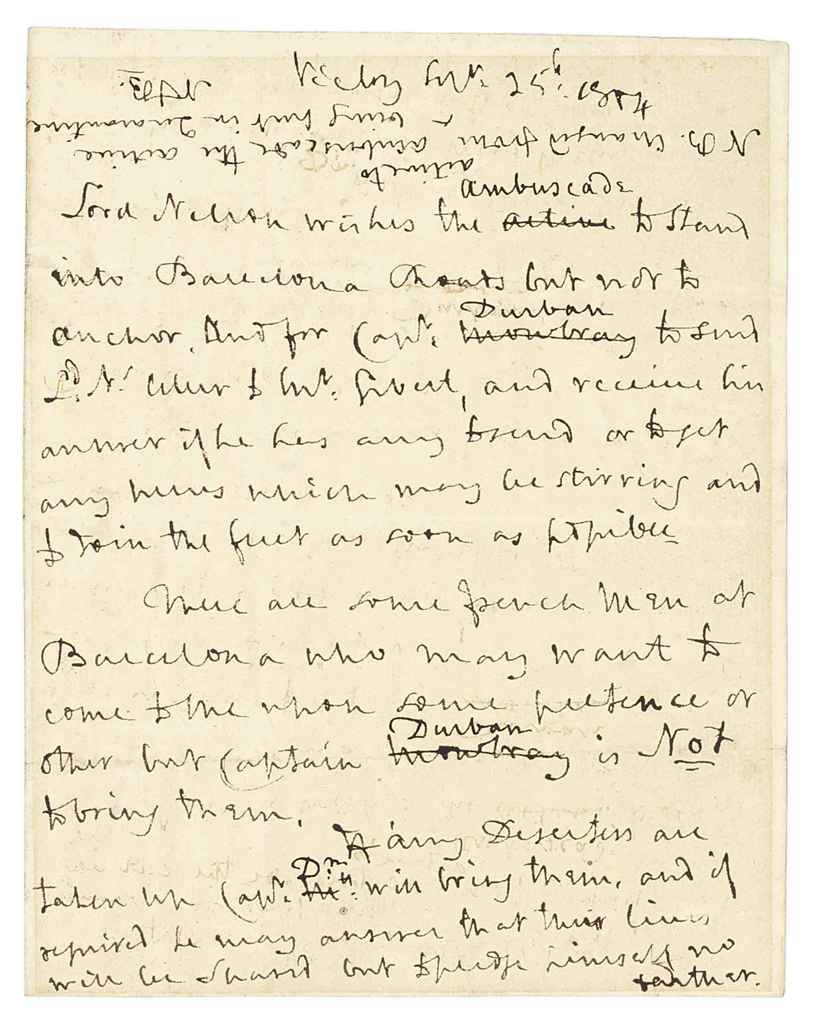 Victory Septr. 25th
N B. changed from ambuscade the active
active to
being put in Quarantine
N&B.
ambuscade
Lord Nelson wishes the active to stand
into Barcelona Roads but not to
Durban
anchor, And for Capt. Mowbray to send
Ld. Ns. letter to Mr. Gibert, and receive his
answer if he has any to send or to get
any news which may be stirring and
to Join the fleet as soon as possible
There are some french Men at
Barcelona who may want to
come to me upon some pretence or
Durban
other but Captain Mowbray is Not
to bring them.
If any Deserters are
Dn.
taken up Capt. M: will bring them, and if
required he may answer that their lives
will be Spared but to pledge himself no
farther.